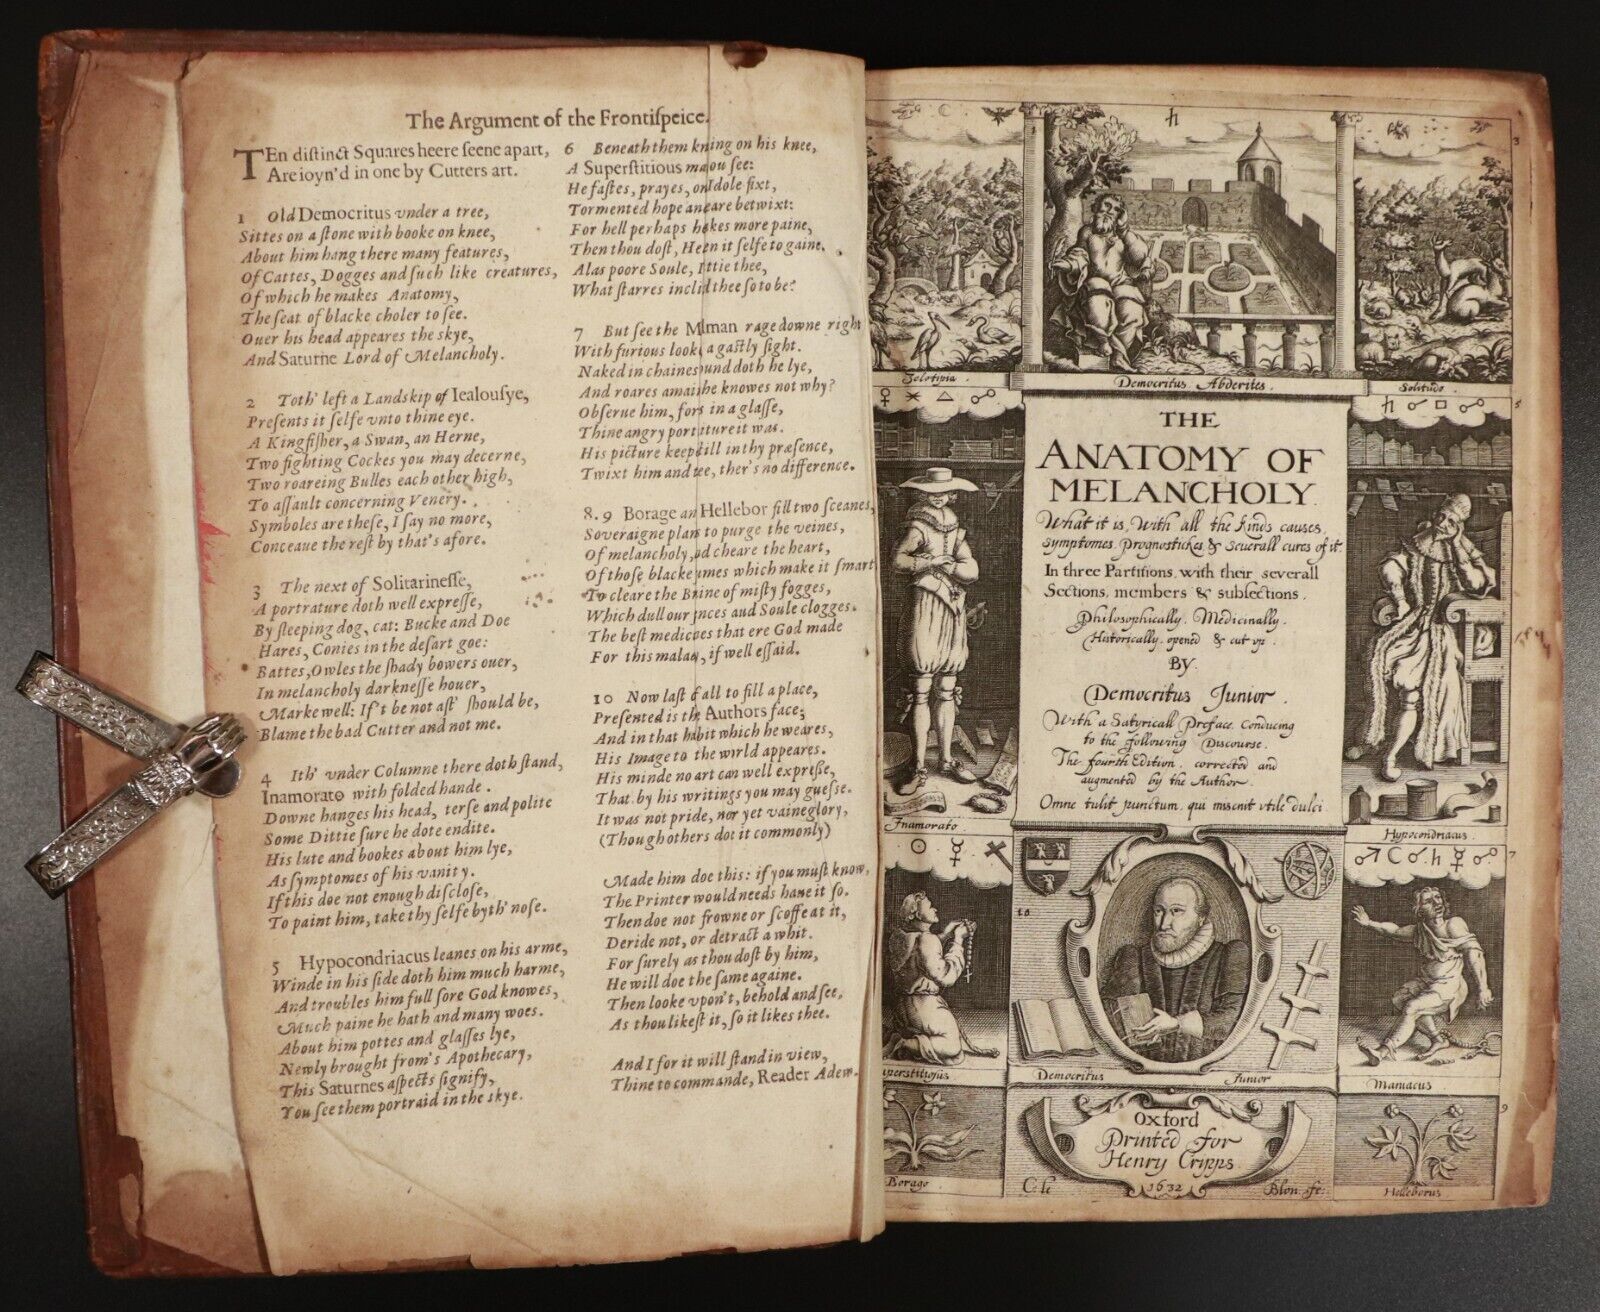 The Argument of the Frontiſpeice.
TEn diſtinct Squares heere ſeene apart,
Are ioyn'd in one by Cutters art.
1 Old Democritus vnder a tree,
Sittes on a ſtone with booke on knee,
About him hang there many features,
Of Cattes, Dogges and ſuch like creatures,
Of which he makes Anatomy,
The ſeat of blacke choler to ſee.
Ouer his head appeares the skye,
And Saturne Lord of Melancholy.
2 Toth' left a Landskip of Iealouſye,
Preſents it ſelfe vnto thine eye.
A Kingfiſher, a Swan, an Herne,
Two fighting Cockes you may decerne,
Two roareing Bulles each other high,
To aſſault concerning Venery.
Symboles are theſe, I ſay no more,
Conceaue the reſt by that's afore.
3 The next of Solitarineſſe,
A portrature doth well expreſſe,
By ſleeping dog, cat: Bucke and Doe
Hares, Conies in the deſart goe:
Battes, Owles the ſhady bowers ouer,
In melancholy darkneſſe houer,
Marke well: If't be not aſt' ſhould be,
Blame the bad Cutter and not me.
4 Ith' vnder Columne there doth ſtand,
Inamorato with folded hande.
Downe hanges his head, terſe and polite
Some Dittie ſure he dote endite.
His lute and bookes about him lye,
As ſymptomes of his vanity.
If this doe not enough diſcloſe,
To paint him, take thy ſelfe byth' noſe.
5 Hypocondriacus leanes on his arme,
Winde in his ſide doth him much harme,
And troubles him full ſore God knowes,
Much paine he hath and many woes.
About him pottes and glaſſes lye,
Newly brought from's Apothecary,
This Saturnes aſpects ſignify,
You ſee them portraid in the skye.
6 Beneath them kning on his knee,
A Superſtitious ma ou ſee:
He faſtes, prayes, on Idole fixt,
Tormented hope an are betwixt:
For hell perhaps he kes more paine,
Then thou doſt, Hee n it ſelfe to gaine.
Alas poore Soule, I ttie thee,
What ſtarres incli d thee ſo to be?
7 But ſee the M man rage downe right
With furious look a gaſtly ſight.
Naked in chaines ound doth he lye,
And roares amai he knowes not why?
Obſerue him, for s in a glaſſe,
Thine angry port iture it was.
His picture keep ill in thy preſence,
Twixt him and ee, ther's no difference.
8. 9 Borage an Hellebor fill two ſceanes,
Soveraigne plan to purge the veines,
Of melancholy, d cheare the heart,
Of thoſe blacke umes which make it ſmart
To cleare the Br ine of miſty fogges,
Which dull our nces and Soule clogges.
The beſt medic es that ere God made
For this mala , if well eſſaid.
10 Now laſt f all to fill a place,
Preſented is th Authors face;
And in that habit which he weares,
His Image to the wirld appeares.
His minde no art can well expreſſe,
That by his writings you may gueſſe.
It was not pride, nor yet vaineglory,
(Though others dot it commonly)
Made him doe this: if you muſt know,
The Printer would needs haue it ſo.
Then doe not frowne or ſcoffe at it,
Deride not, or detract a whit.
For ſurely as thou doſt by him,
He will doe the ſame againe.
Then looke vpon't, behold and ſee,
As thou likeſt it, ſo it likes thee.
And I for it will ſtand in view,
Thine to commande, Reader Adew.
1
3
Zelotipia.
Democritus Abderites.
Solitudo.
5
THE
ANATOMY OF
MELANCHOLY
What it is, With all the kinds causes,
symptomes, prognostickes & seuerall cures of it.
In three Partitions, with their severall
Sections, members & subsections.
Philosophically, Medicinally,
Historically, opened & cut vp.
BY.
Democritus Junior.
With a Satyricall Preface, Conducing
to the following Discourse.
The fourth Edition, corrected and
augmented by the Author.
Omne tulit punctum, qui miscuit vtile dulci.
Inamorato
Hypocondriacus.
7
10
uperstitiosus.
Democritus
Junior
Maniacus.
9
Oxford
Printed for
Henry Cripps
1632
Borago.
C. le
Blon. fe:
Helleborus